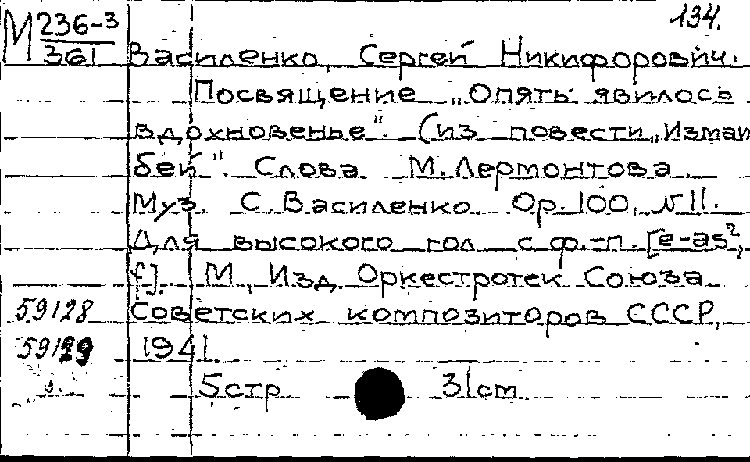 134.
М 236-3
361 Василенко, Сергей Никифорович.
Посвящение „Опять явилось
вдохновенье". (из повести „Измаи
бей". Слова М. Лермонтова.
Муз. С. Василенко Ор. 100, №11.
Для высокого гол. с ф.-п. [e-as²,
f]. М., Изд. Оркестротек Союза
59128 Советских композиторов СССР,
59129 1941.
5 стр. 31 cm